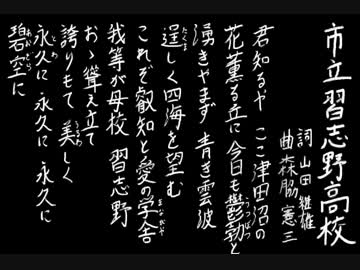 市立習志野高校
詞 山田継雄
曲 森脇憲三
君知るや ここ津田沼の
花薫る丘に 今日も鬱勃と
うつぼつ
湧きやまず 青き雲波
逞しく四海を望む
たくま
これぞ叡知と愛の学舎
まなびや
我等が母校 習志野
おゝ聳え立て
誇りもて 美しく
うるわ
永久に 永久に 永久に
とわ
碧空に
あおぞら